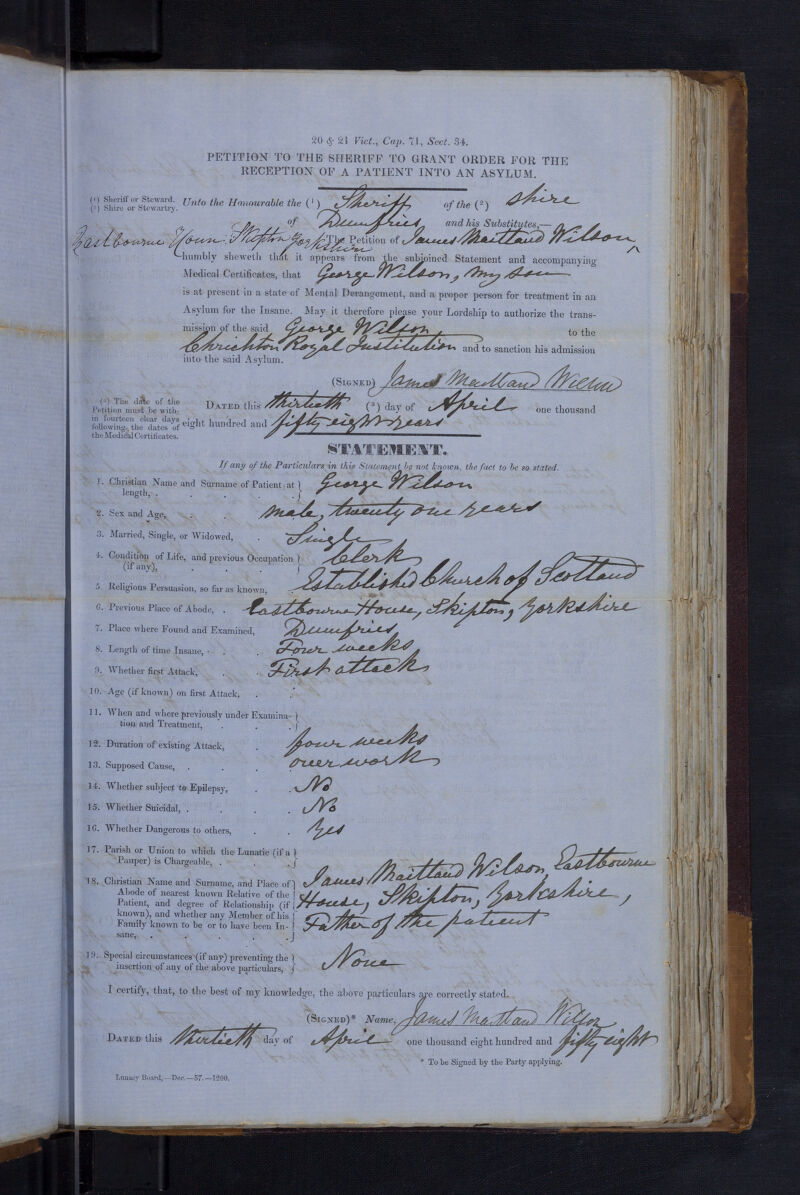 20 & 21 Vict., Cap. 71, Sect. 34.
PETITION TO THE SHERIFF TO GRANT ORDER FOR THE
RECEPTION OF A PATIENT INTO AN ASYLUM.
(¹) Sheriff or Steward.
(²) Shire or Stewartry.
Unto the Honourable the (¹) Sheriff of the (²) Shire
of Dumfries and his Substitutes,—
The Petition of James Maitland Wilson,
Eastbourne House, Skipton Yorkshire
humbly sheweth that it appears from the subjoined Statement and accompanying
Medical Certificates, that George Wilson, my son
is at present in a state of Mental Derangement, and a proper person for treatment in an
Asylum for the Insane. May it therefore please your Lordship to authorize the trans-
mission of the said George Wilson to the
Chrichton Royal Institution and to sanction his admission
into the said Asylum.
(SIGNED) James Maitland Wilson
(³) The date of the
Petition must be with-
in fourteen clear days
following, the dates of
the Medical Certificates.
DATED this thirtieth (³) day of April one thousand
eight hundred and fifty eight years
STATEMENT.
If any of the Particulars in this Statement be not known, the fact to be so stated.
1. Christian Name and Surname of Patient at
length, . . . . . George Wilson
2. Sex and Age, . . . male, twenty one years
3. Married, Single, or Widowed, . Single
4. Condition of Life, and previous Occupation
(if any), . . . . Clerk
5. Religious Persuasion, so far as known, Established Church of Scotland
6. Previous Place of Abode, . Eastbourne House, Skipton, Yorkshire
7. Place where Found and Examined, Dumfries
8. Length of time Insane, . . . Four weeks
9. Whether first Attack, . . First attack
10. Age (if known) on first Attack, . .
11. When and where previously under Examina-
tion and Treatment, . . .
12. Duration of existing Attack, . four weeks
13. Supposed Cause, . . . over work
14. Whether subject to Epilepsy, . . No
15. Whether Suicidal, . . . . No
16. Whether Dangerous to others, . . Yes
17. Parish or Union to which the Lunatic (if a
Pauper) is Chargeable, . . .
18. Christian Name and Surname, and Place of
Abode of nearest known Relative of the
Patient, and degree of Relationship (if
known), and whether any Member of his
Family known to be or to have been In-
sane, . . . . .
James Maitland Wilson, Eastbourne
House, Skipton, Yorkshire,
Father of the patient
19. Special circumstances (if any) preventing the
insertion of any of the above particulars, None
I certify, that, to the best of my knowledge, the above particulars are correctly stated.
(SIGNED)* Name, James Maitland Wilson
DATED this thirtieth day of April one thousand eight hundred and fifty eight
* To be Signed by the Party applying.
Lunacy Board,—Dec.—57.—1200.